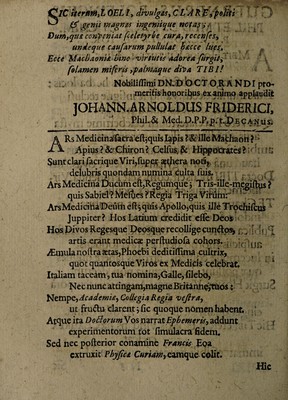 SIC iterum, LOELI, divulgas, CLARE, politi
Et genii magnas ingeniique notas;
Dum, quæ conveniat sceletyrbæ cura, recenses,
undeque causarum pullulat hæcce lues.
Ecce Machaoniæ hinc virtutis adorea surgit,
solamen miseris, palmaque diva TIBI!
Nobilissimi DN. DOCTORANDI pro-
meritis honoribus ex animo applaudit
JOHANN. ARNOLDUS FRIDERICI,
Phil. & Med. D.P.P. p.t. DECANUS.
ARs Medicina sacra est; quis Iapis? & ille Machaon?
Apius? & Chiron? Celsus, & Hippocrates?
Sunt clari sacrique Viri, super æthera noti,
delubris quondam numina culta suis.
Ars Medicina Ducum est, Regumque; Tris-ille-megistus?
quis Sabiel? Mesues? Regia Triga Virûm.
Ars Medicina Deûm est; quis Apollo, quis ille Trochiscus
Juppiter? Hos Latium credidit esse Deos
Hos Divos Regesque Deosque recollige cunctos,
artis erant medicæ perstudiosa cohors.
Æmula nostra ætas, Phoebi deditissima cultrix,
quot quantosque Viros ex Medicis celebrat.
Italiam taceam, tua nomina, Galle, silebo,
Nec nunc attingam, magne Britanne, tuos:
Nempe, Academiæ, Collegia Regia vestra,
ut fructu clarent; sic quoque nomen habent.
Atque ita Doctorum Vos narrat Ephemeris, addunt
experimentorum tot simulacra fidem.
Sed nec posterior conamine Francis Eoa
extruxit Physicæ Curiam, eamque colit.
Hic